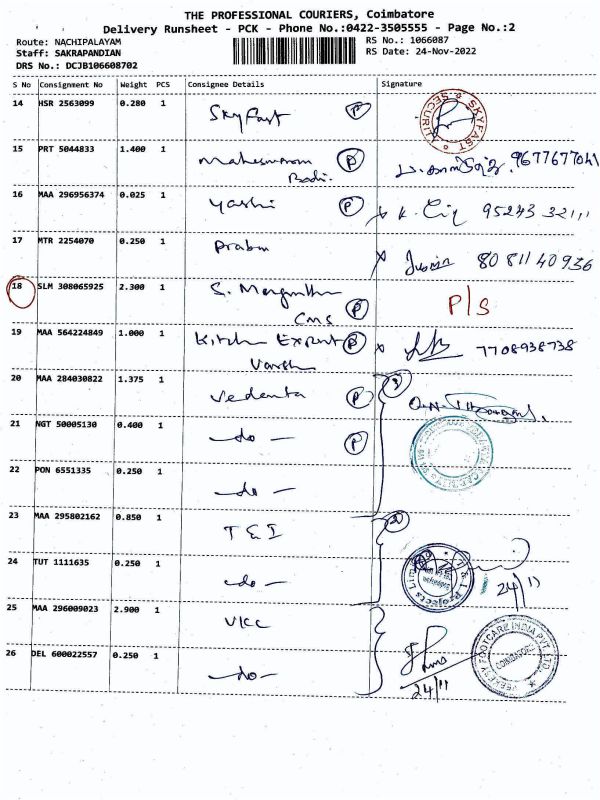 THE PROFESSIONAL COURIERS, Coimbatore
Delivery Runsheet - PCK - Phone No.:0422-3505555 - Page No.:2
Route: NACHIPALAYAM RS No.: 1066087
Staff: SAKRAPANDIAN RS Date: 24-Nov-2022
DRS No.: DCJB106608702
S No Consignment No Weight PCS Consignee Details Signature
14 HSR 2563099 0.280 1 Skyfast P SKYFAST SECURIT
15 PRT 5044833 1.400 1 Maheswaram P 9677677041
Badi.
16 MAA 296956374 0.025 1 Yashi P x K. 95243 32111
17 MTR 2254070 0.250 1 Prabu x 8081140936
18 SLM 308065925 2.300 1 S. P P/S
CMS
19 MAA 564224849 1.000 1 Kitchen Expert P x 7708938738
Varsh
20 MAA 284030822 1.375 1 Vedanta P 3
21 NGT 50005130 0.400 1 - do - P
22 PON 6551335 0.250 1 - do -
23 MAA 295802162 0.850 1 T & I
24 TUT 1111635 0.250 1 - do - T & I Projects Limited 24/11
25 MAA 296009023 2.900 1 VKC
26 DEL 600022557 0.250 1 - do - 24/11 FOOTCARE INDIA PVT. LTD. COIMBATORE